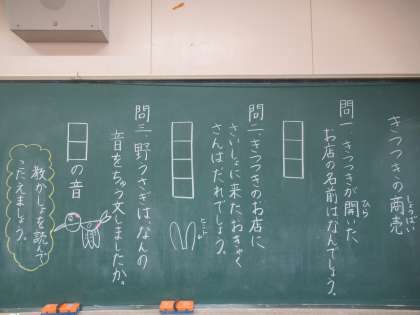 きつつきの商売
しょうばい
問一、きつつきが開いた
ひら
お店の名前はなんでしょう。
問二、きつつきのお店に、
さいしょに来たおきゃく
さんはだれでしょう。
ヒント
問三、野うさぎは、なんの
音をちゅう文しましたか。
の音
教かしょを読んで
こたえましょう。